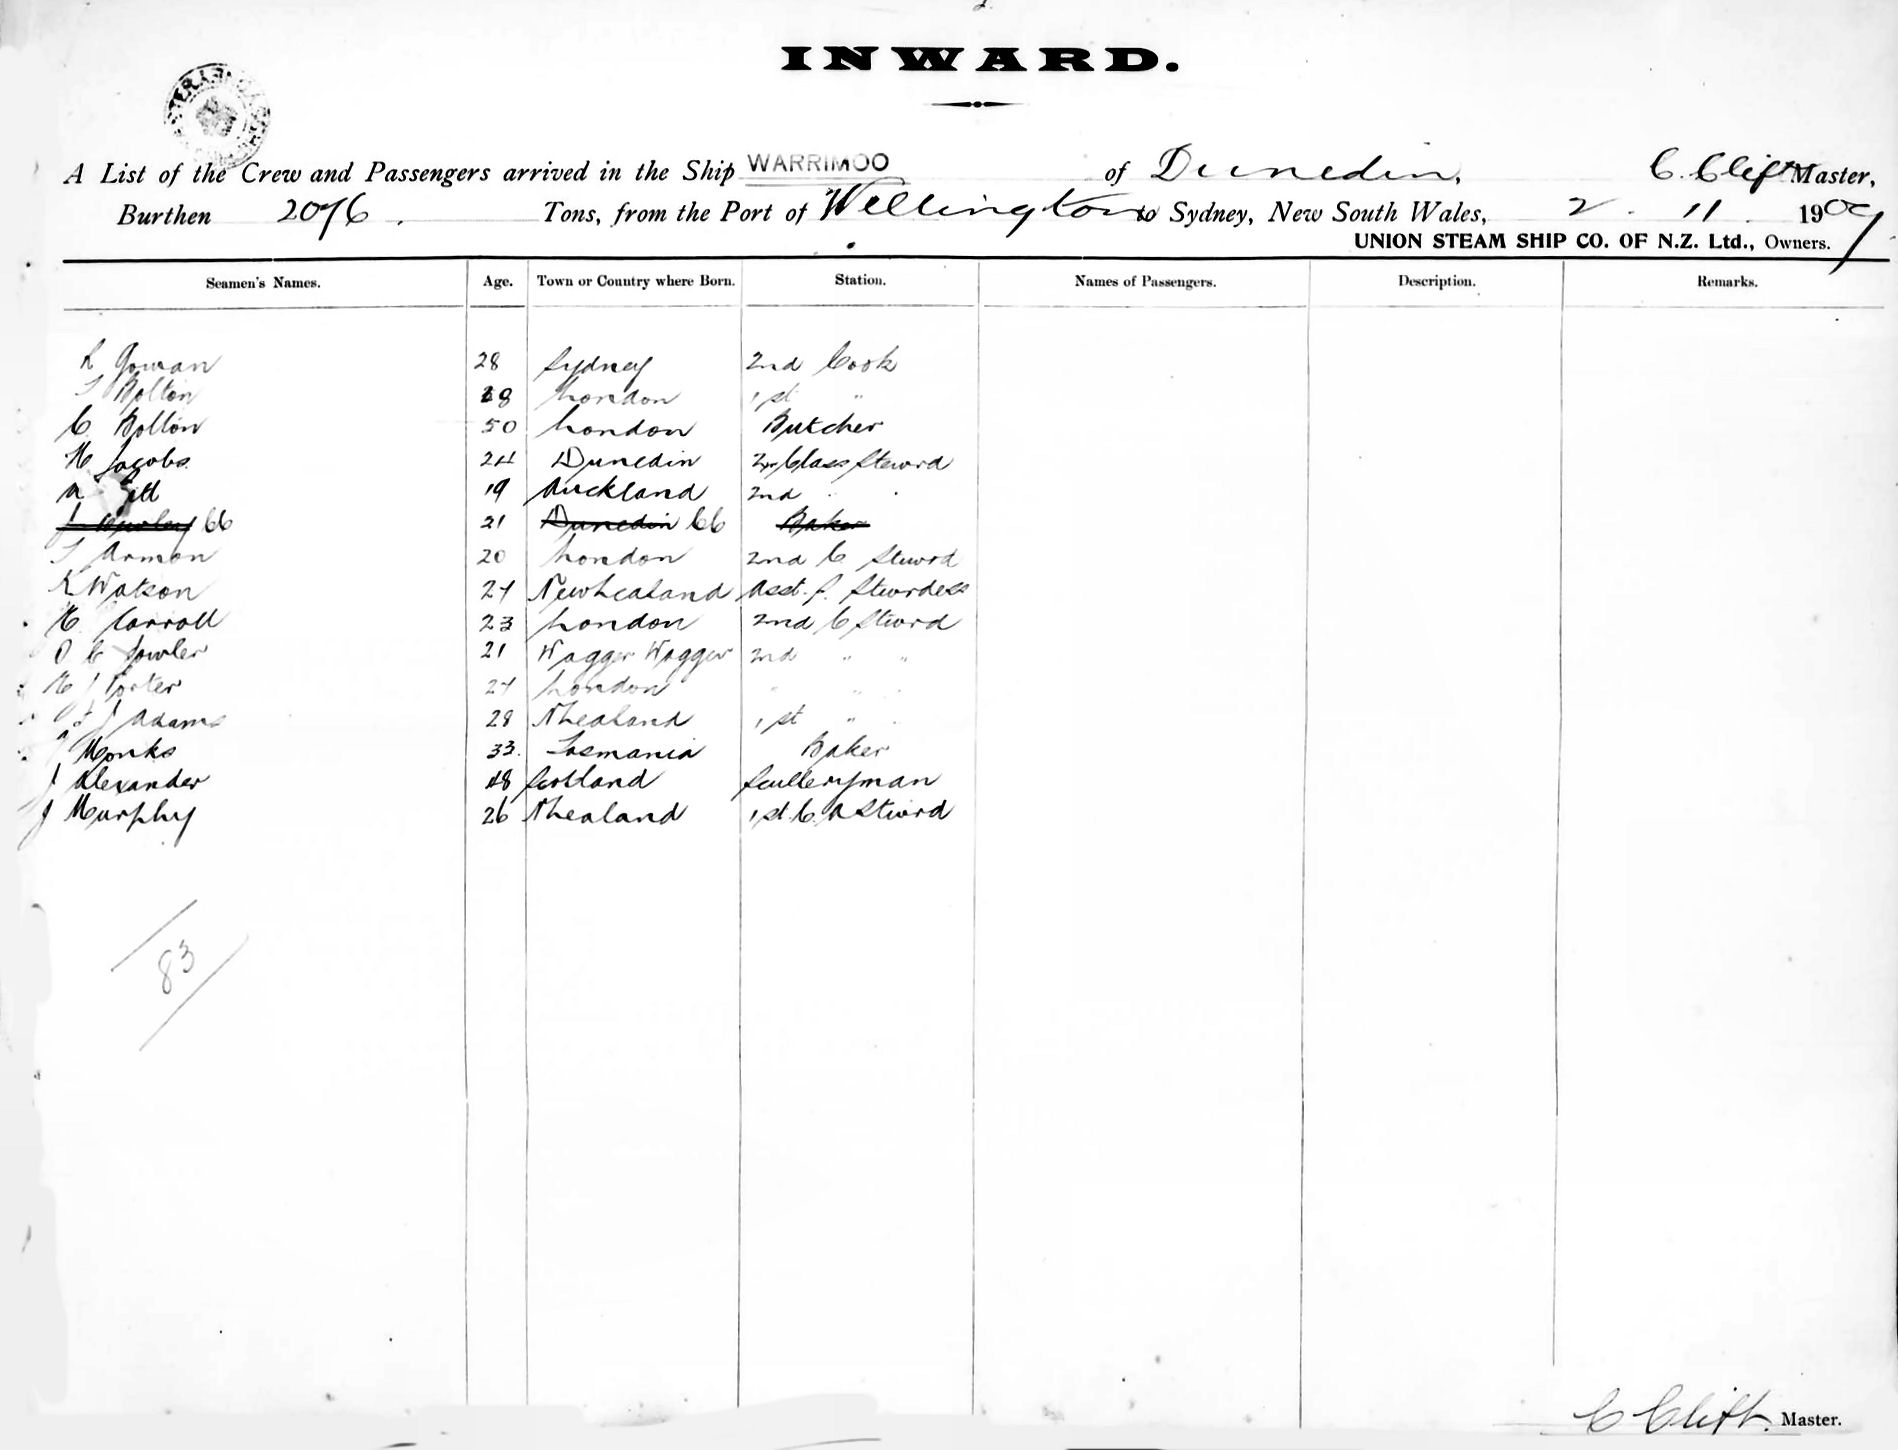 INWARD.
A List of the Crew and Passengers arrived in the Ship WARRIMOO of Dunedin, C. Clift Master,
Burthen 2076. Tons, from the Port of Wellington to Sydney, New South Wales, 2. 11. 1909
UNION STEAM SHIP CO. OF N.Z. Ltd., Owners.
Seamen's Names. Age. Town or Country where Born. Station. Names of Passengers. Description. Remarks.
Gowan 28 Sydney 2nd Cook
Bolton 28 London 1st "
C Bolton 50 London Butcher
H Jacobs 24 Dunedin Class Steward
Gill 19 Auckland 2nd
CC 21 Dunedin CC Baker
Armon 20 London 2nd C Stewrd
K Watson 24 New Zealand Asst. Stewrdess
H Carroll 23 London 2nd C Steward
O C Fowler 21 Wagger Wagger 2nd " "
H J Porter 24 London " " "
J Adams 28 N Zealand 1st " "
Monks 33. Tasmania Baker
J Alexander 48 Scotland Sculleryman
J Murphy 26 N Zealand 1st C. A Steward
83
C Clift. Master.